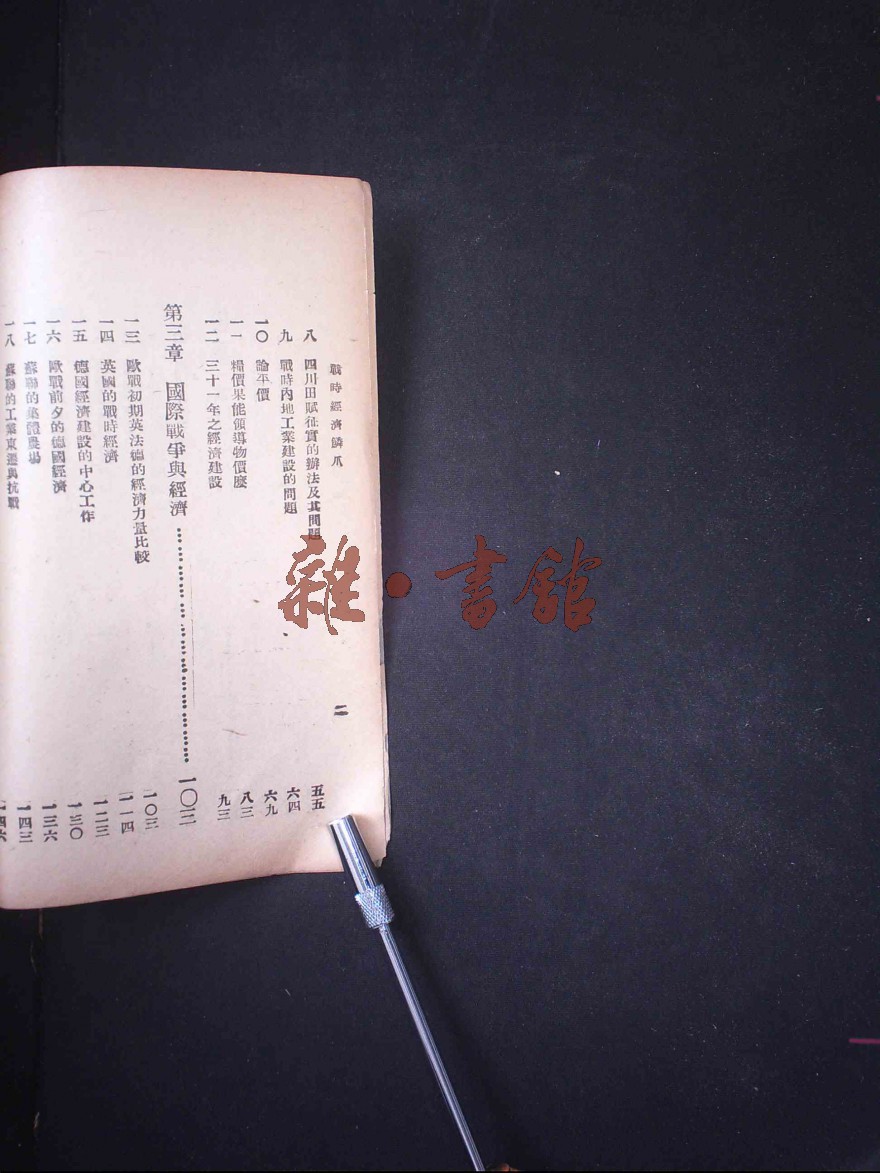 戰時經濟鱗爪
二
八 四川田賦征實的辦法及其問題 五五
九 戰時內地工業建設的問題 六四
一〇 論平價 六九
一一 糧價果能領導物價麼 八三
一二 三十一年之經濟建設 九三
第三章 國際戰爭與經濟 一〇三
一三 歐戰初期英法德的經濟力量比較 一〇三
一四 英國的戰時經濟 一一四
一五 德國經濟建設的中心工作 一二三
一六 歐戰前夕的德國經濟 一三〇
一七 蘇聯的集體農場 一三六
一八 蘇聯的工業東遷與抗戰 一四三
一四六
雜·書館